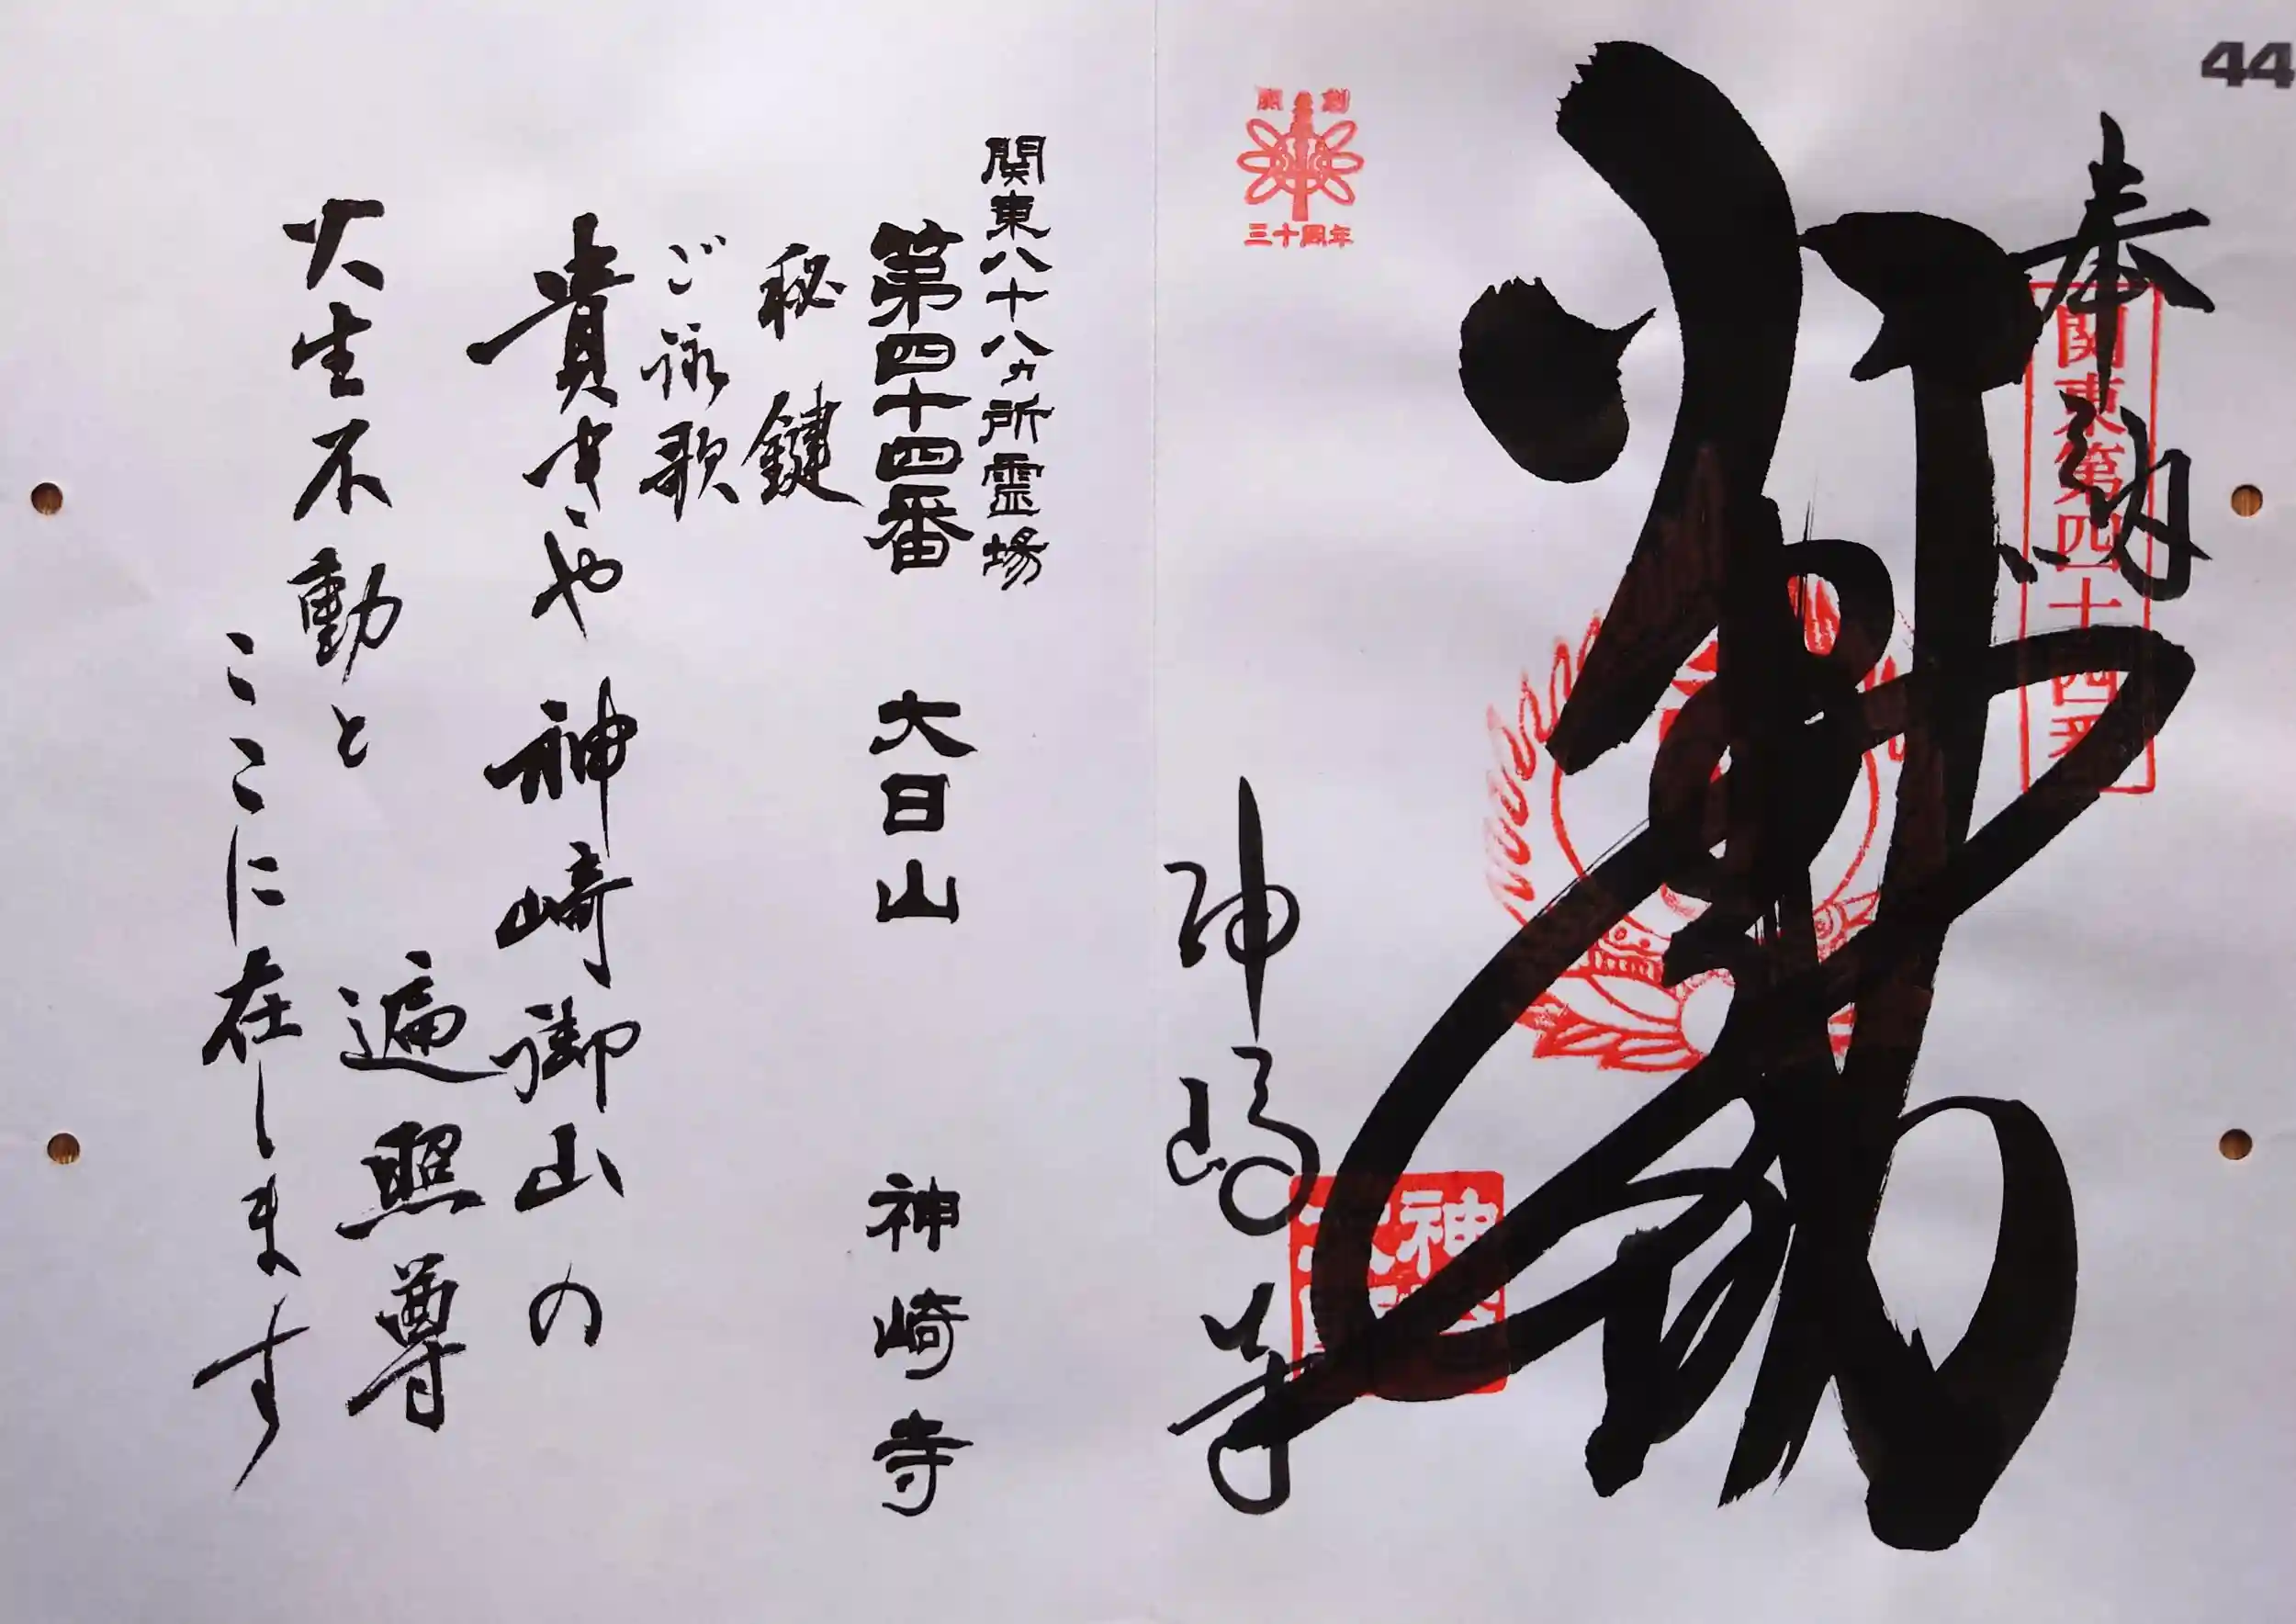 44
奉納
関東第四十四番
開創
三十周年
神崎寺
関東八十八ヵ所霊場
第四十四番 大日山 神崎寺
秘鍵
ご詠歌
貴きや 神崎御山の
火生不動と 遍照尊
ここに在します